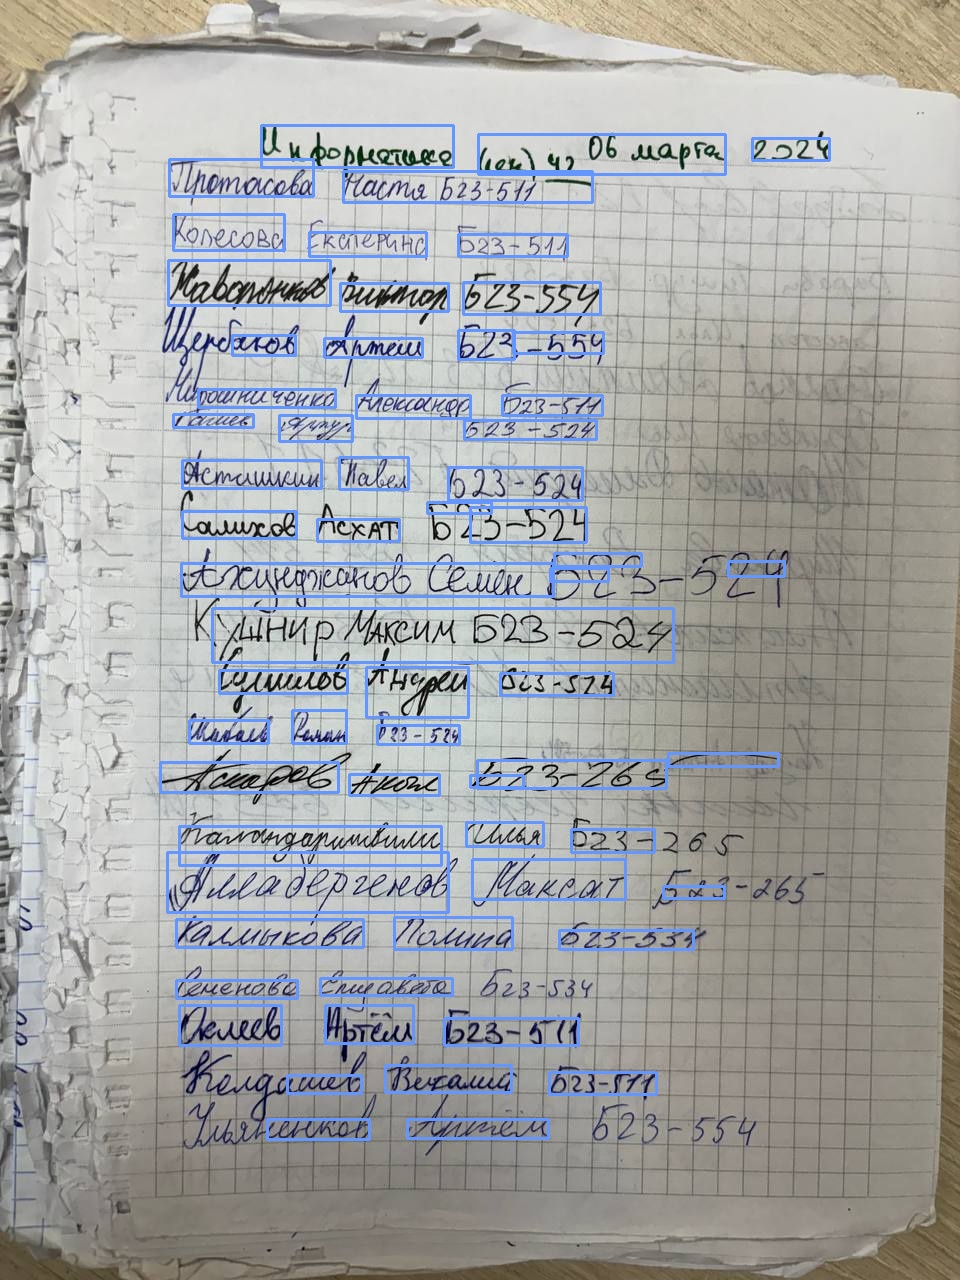 Информатика (лек) 42 06 марта 2024
Протасова Настя Б23-511
Колесова Екатерина Б23-511
Жаворонков Виктор Б23-554
Щербаков Артём Б23-554
Мирошниченко Александр Б23-511
Артур Б23-524
Асташкин Павел Б23-524
Салихов Асхат Б23-524
Ахунджанов Семён Б23-524
Кушнир Максим Б23-524
Андрей Б23-524
Роман Б23-524
Аскаров Б23-265
Каландаришвили Илья Б23-265
Алладергенов Максат Б23-265
Калмыкова Полина Б23-534
Семенова Елизавета Б23-534
Оклеев Артём Б23-511
Колдашев Б23-511
Ульяненков Артём Б23-554